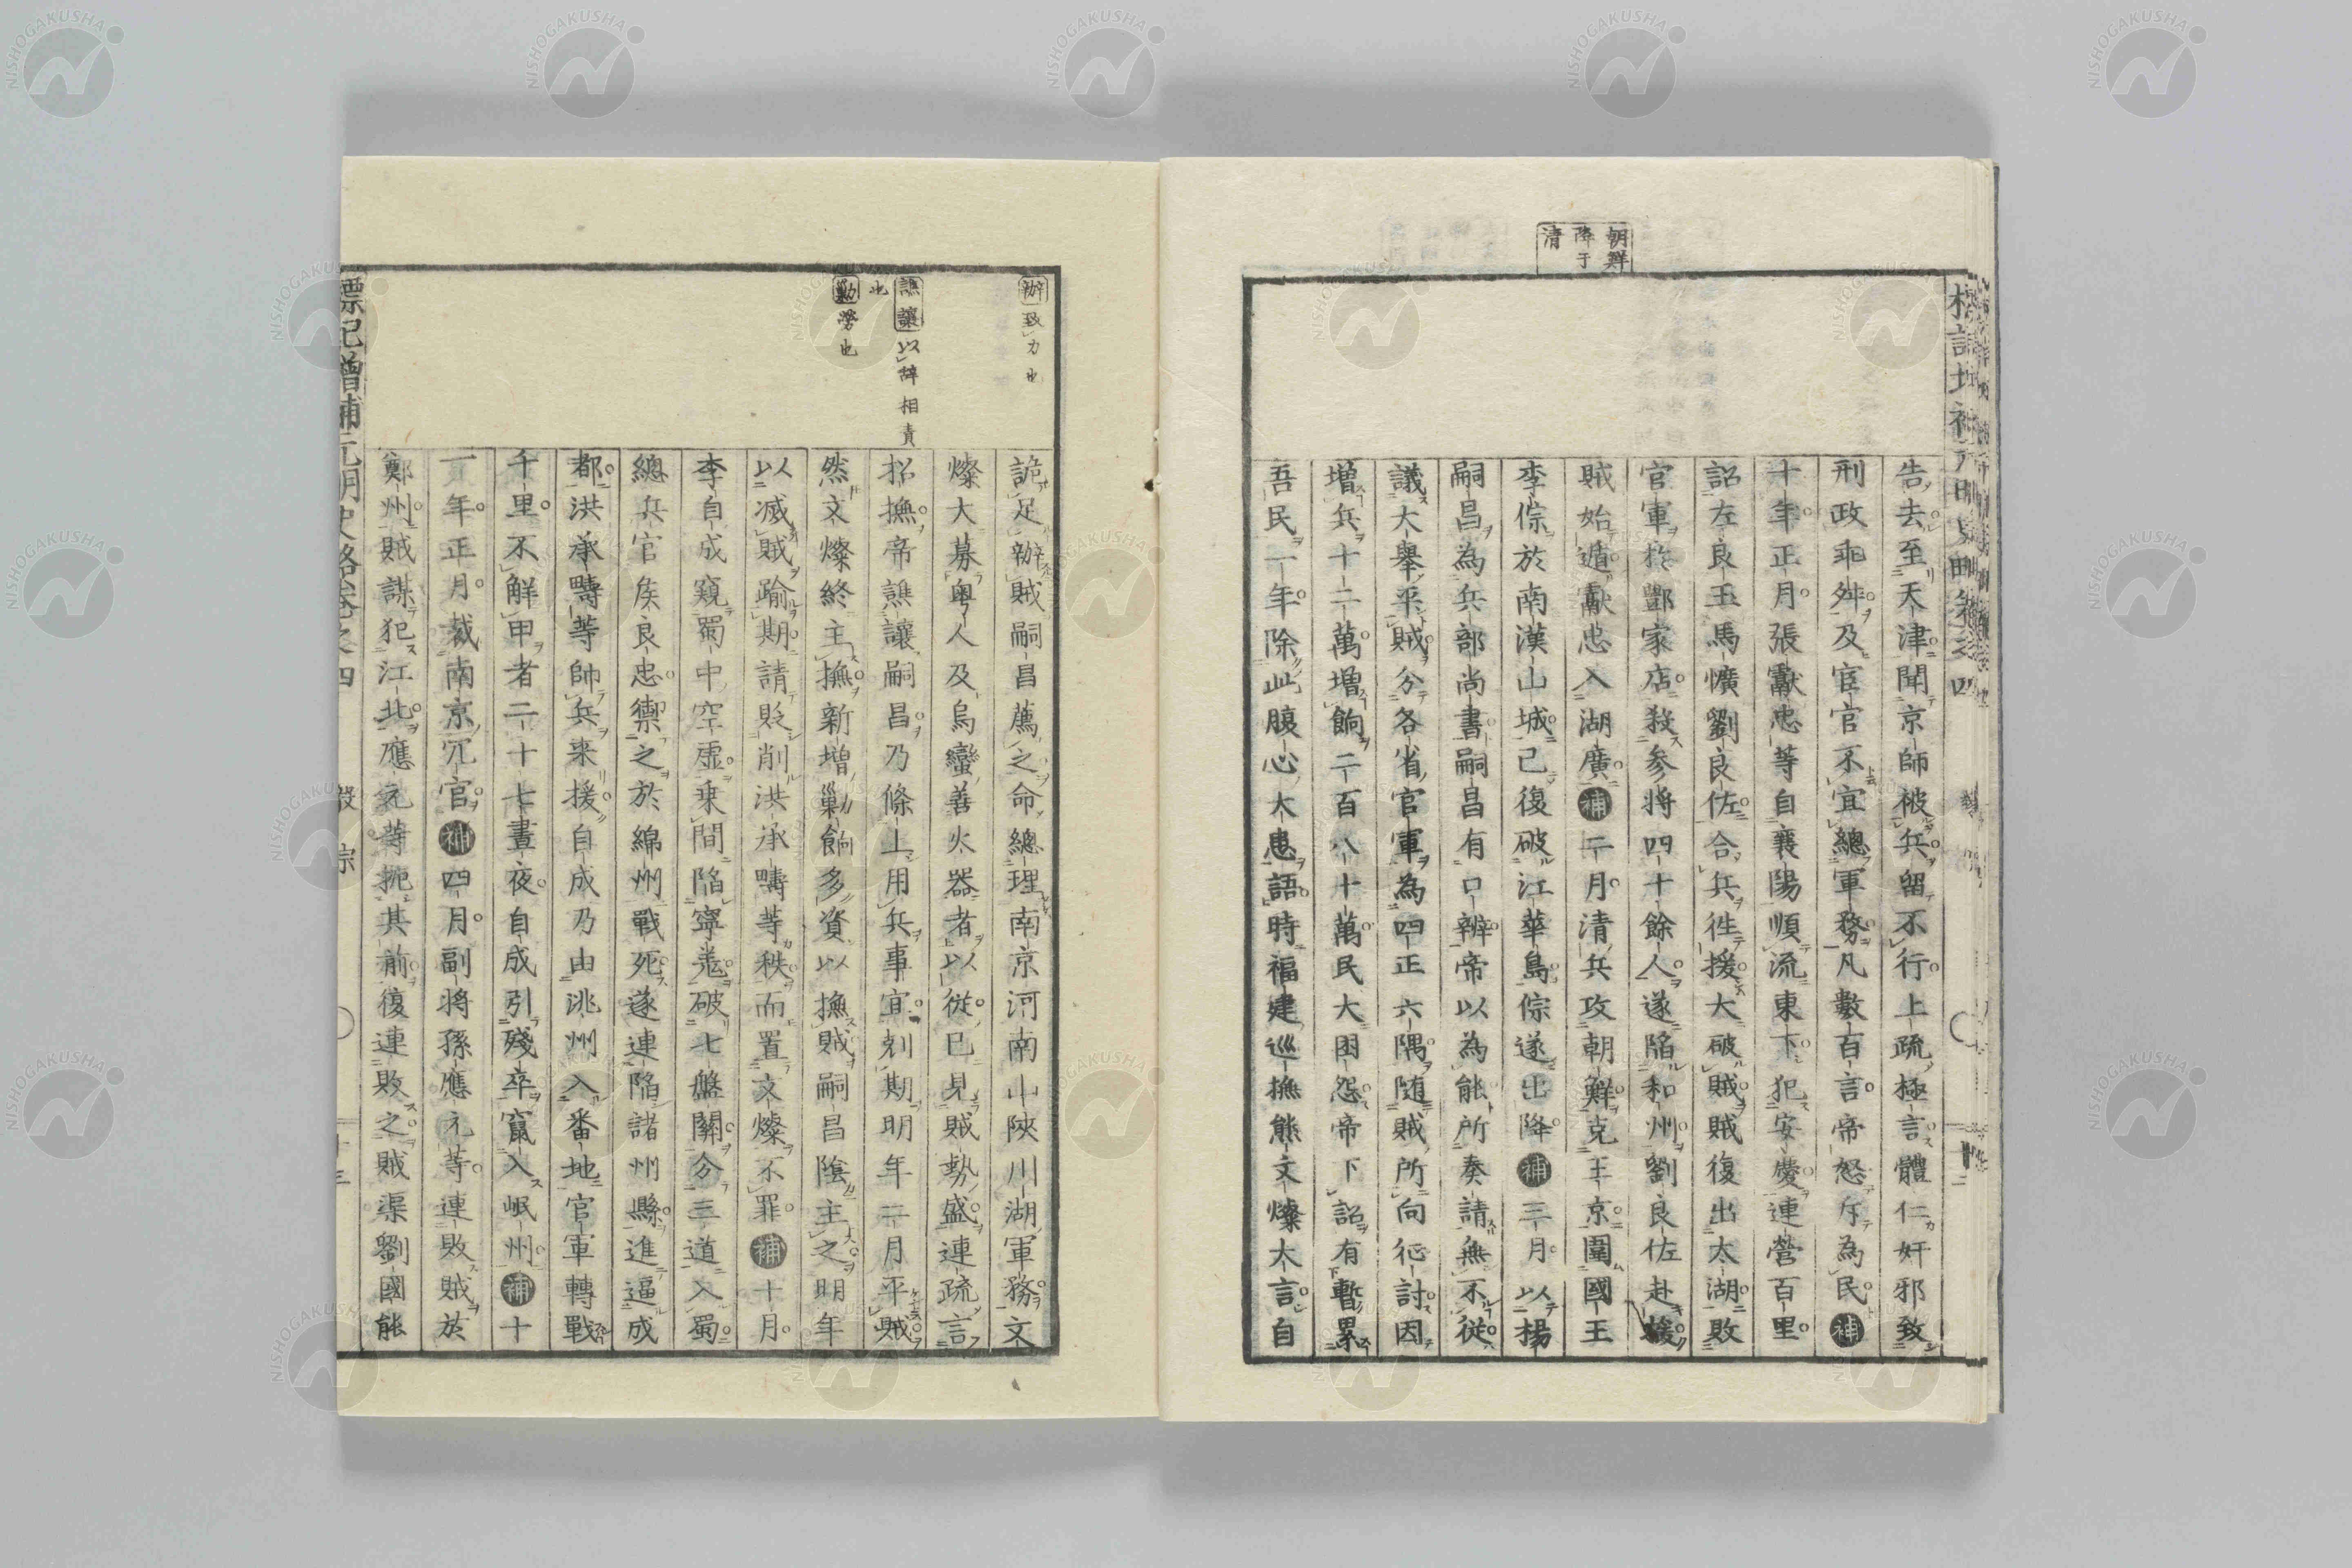 朝鮮
降于
清
告去至天津聞京師被兵留不行上疏極言體仁奸邪致
刑政乖舛及宦官不宜總軍務凡數百言帝怒斥為民補
十年正月張獻忠等自襄陽順流東下犯安慶連營百里
詔左良玉馬爌劉良佐合兵徃援大破賊賊復出太湖敗
官軍於酆家店殺参將四十餘人遂陷和州劉良佐赴援
賊始遁獻忠入湖廣補二月清兵攻朝鮮克王京圍國王
李倧於南漢山城已復破江華島倧遂出降補三月以楊
嗣昌為兵部尚書嗣昌有口辨帝以為能所奏請無不從
議大舉平賊分各省官軍為四正六隅随賊所向征討因
増兵十二萬増餉二百八十萬民大困怨帝下詔有暫累
吾民一年除此腹心大患語時福建巡撫熊文燦大言自
辦致力也
譙讓以辞相責
也
勦勞也
詭足辦賊嗣昌薦之命總理南京河南山陝川湖軍務文
燦大募粤人及烏蠻善火器者以從已見賊勢盛連疏言
招撫帝譙讓嗣昌乃條上用兵事宜剋期明年二月平賊
然文燦終主撫新増勦餉多資以撫賊嗣昌陰主之明年
以滅賊踰期請貶削洪承疇等秩而置文燦不罪補十月
李自成窺蜀中空虛乗間陷寧羗破七盤關分三道入蜀
總兵官矦良忠禦之於綿州戰死遂連陷諸州縣進逼成
都洪承疇等帥兵来援自成乃由洮州入番地官軍轉戰
千里不解甲者二十七晝夜自成引殘卒竄入岷州補十
一年正月裁南京冗官補四月副將孫應元等連敗賊於
鄭州賊謀犯江北應元等扼其前復連敗之賊渠劉國能
標記增補元明史略卷之四